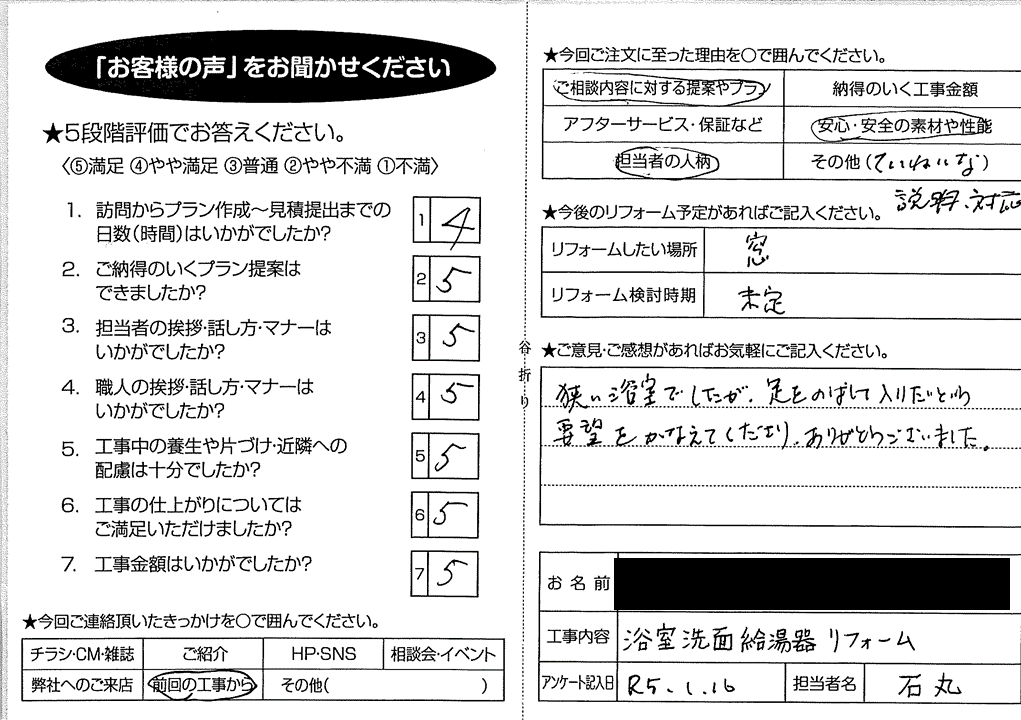 「お客様の声」をお聞かせください
★5段階評価でお答えください。
〈⑤満足 ④やや満足 ③普通 ②やや不満 ①不満〉
1. 訪問からプラン作成~見積提出までの
日数(時間)はいかがでしたか?
1 4
2. ご納得のいくプラン提案は
できましたか?
2 5
3. 担当者の挨拶・話し方・マナーは
いかがでしたか?
3 5
4. 職人の挨拶・話し方・マナーは
いかがでしたか?
4 5
5. 工事中の養生や片づけ・近隣への
配慮は十分でしたか?
5 5
6. 工事の仕上がりについては
ご満足いただけましたか?
6 5
7. 工事金額はいかがでしたか?
7 5
★今回ご連絡頂いたきっかけを○で囲んでください。
チラシ・CM・雑誌 ご紹介 HP・SNS 相談会・イベント
弊社へのご来店 前回の工事から その他( )
谷折り
★今回ご注文に至った理由を○で囲んでください。
ご相談内容に対する提案やプラン 納得のいく工事金額
アフターサービス・保証など 安心・安全の素材や性能
担当者の人柄 その他(ていねいな)
説明、対応
★今後のリフォーム予定があればご記入ください。
リフォームしたい場所 窓
リフォーム検討時期 未定
★ご意見・ご感想があればお気軽にご記入ください。
狭い浴室でしたが、足をのばして入りたいとの
要望をかなえてくださり、ありがとうございました。
お名前
工事内容 浴室洗面給湯器リフォーム
アンケート記入日 R5.1.16 担当者名 石丸